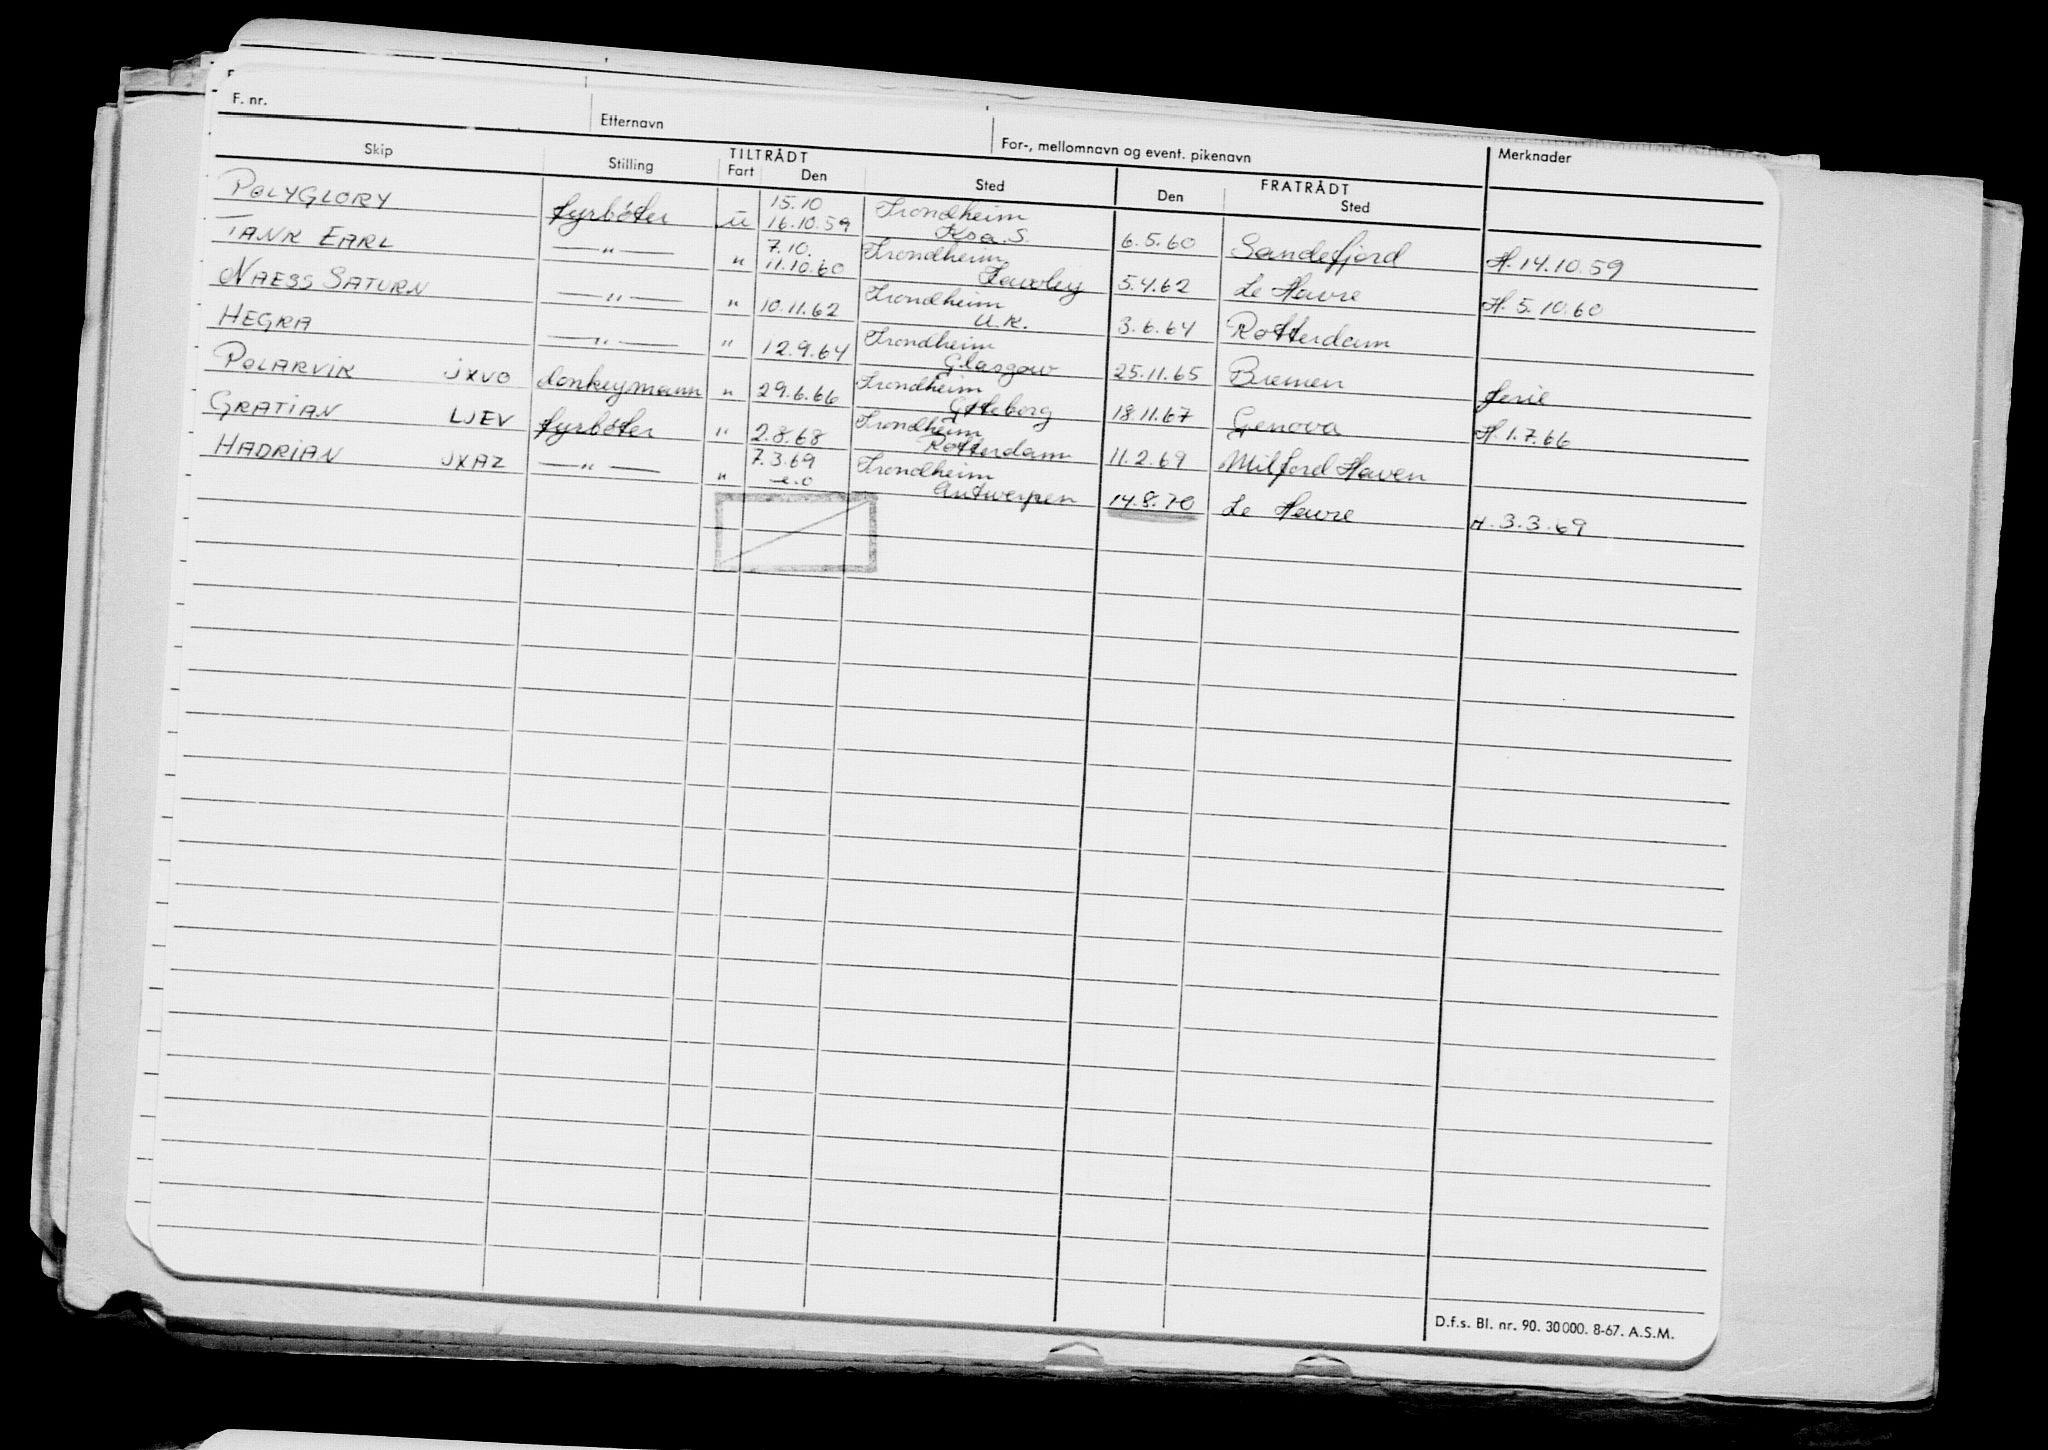 F. nr. Etternavn For-, mellomnavn og event. pikenavn Merknader
Skip Stilling TILTRÅDT Fart Den Sted FRATRÅDT Den Sted
POLYGLORY fyrbøter u 15.10 16.10.59 Trondheim 6.5.60 Sandefjord H.14.10.59
TANK EARL —"— " 7.10. 11.10.60 Trondheim 5.4.62 Le Havre H.5.10.60
NAESS SATURN —"— " 10.11.62 Trondheim U.K. 3.6.64 Rotterdam
HEGRA —"— " 12.9.64 Trondheim Glasgow 25.11.65 Bremen ferie
POLARVIK JXVO donkeymann " 29.6.66 Trondheim Gøteborg 18.11.67 Genova H.1.7.66
GRATIAN LJEV fyrbøter " 2.8.68 Trondheim Rotterdam 11.2.69 Milford Haven
HADRIAN JXAZ —"— " 7.3.69 Trondheim Antwerpen 14.8.70 Le Havre H.3.3.69
D.f.s. Bl. nr. 90. 30000. 8-67. A.S.M.